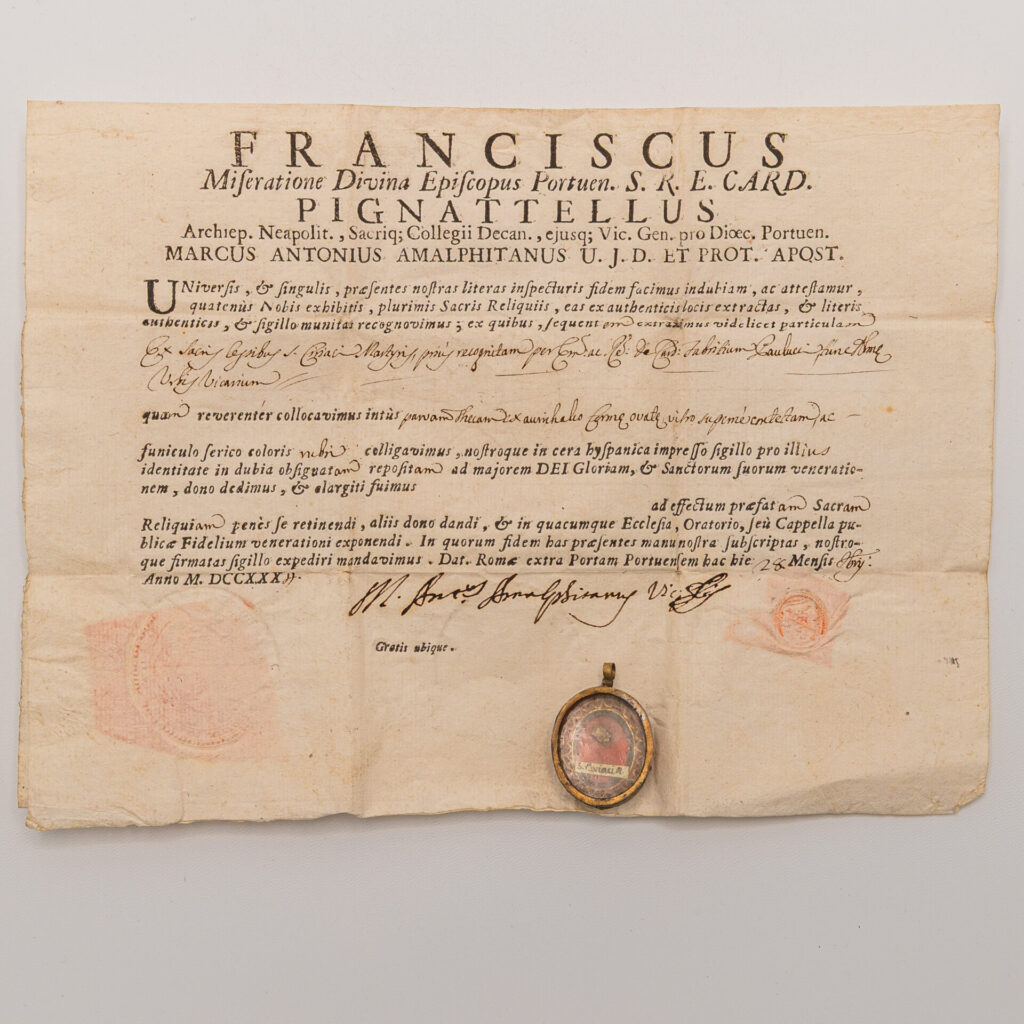 FRANCISCUS
Miſeratione Divina Epiſcopus Portuen. S. R. E. CARD.
PIGNATTELLUS
Archiep. Neapolit., Sacriq; Collegii Decan., ejusq; Vic. Gen. pro Diœc. Portuen.
MARCUS ANTONIUS AMALPHITANUS U. J. D. ET PROT. APOST.
UNiverſis, & ſingulis, præſentes noſtras literas inſpecturis fidem facimus indubiam, ac atteſtamur,
quatenùs Nobis exhibitis, plurimis Sacris Reliquiis, eas ex authenticis locis extractas, & literis
authenticis, & ſigillo munitas recognovimus; ex quibus, ſequentem extraximus videlicet particulam
Ex Sacris S. Ciriaci Martyris prius recognitam per
Urbis Vicarium
quam reverentèr collocavimus intùs parvam thecam ex aurichalco formæ ovatæ vitro supernè contectam, ac
funiculo ſerico coloris rubri colligavimus, noſtroque in cera hyſpanica impreſſo ſigillo pro illius
identitate in dubia obſignatam repoſitam ad majorem DEI Gloriam, & Sanctorum ſuorum veneratio-
nem, dono dedimus, & elargiti fuimus
ad effectum præfatam Sacram
Reliquiam penès ſe retinendi, aliis dono dandi, & in quacumque Eccleſia, Oratorio, ſeù Cappella pu-
blicæ Fidelium venerationi exponendi. In quorum fidem has præſentes manu noſtra ſubſcriptas, noſtro-
que firmatas ſigillo expediri mandavimus. Dat. Romæ extra Portam Portuenſem hac die 28 Menſis
Anno M. DCCXXX
M. Ant.us Amalphitanus Vic.
Gratis ubique.
S. Ciriaci M.